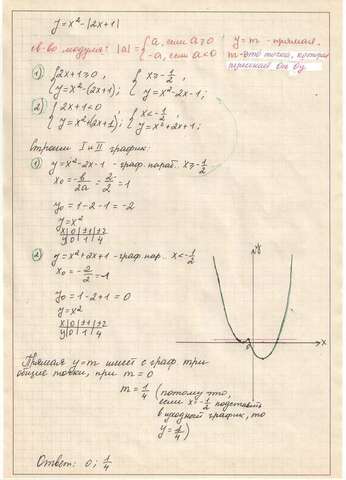 y=x²-|2x+1|
св-во модуля: |a|={a, если a≥0 y=m - прямая.
-a, если a<0 m-это точка, которая пересекает ось Oy
1) {2x+1≥0, {x≥-1/2,
y=x²-(2x+1); y=x²-2x-1;
2) {2x+1<0, {x<-1/2,
y=x²+(2x+1); y=x²+2x+1;
строим I и II график:
1) y=x²-2x-1 - граф. параб. x≥-1/2
x₀=-b/2a=2/2=1
y₀=1-2-1=-2
y=x²
x|0|±1|±2
y|0|1|4
2) y=x²+2x+1 - граф. пар.. x<-1/2
x₀=-2/2=-1
y₀=1-2+1=0
y=x²
x|0|±1|±2
y|0|1|4
y
x
Прямая y=m имеет с граф три
общие точки, при m=0
m=1/4 (потому что,
если x=-1/2 подставить
в исходный график, то
y=1/4)
Ответ: 0; 1/4